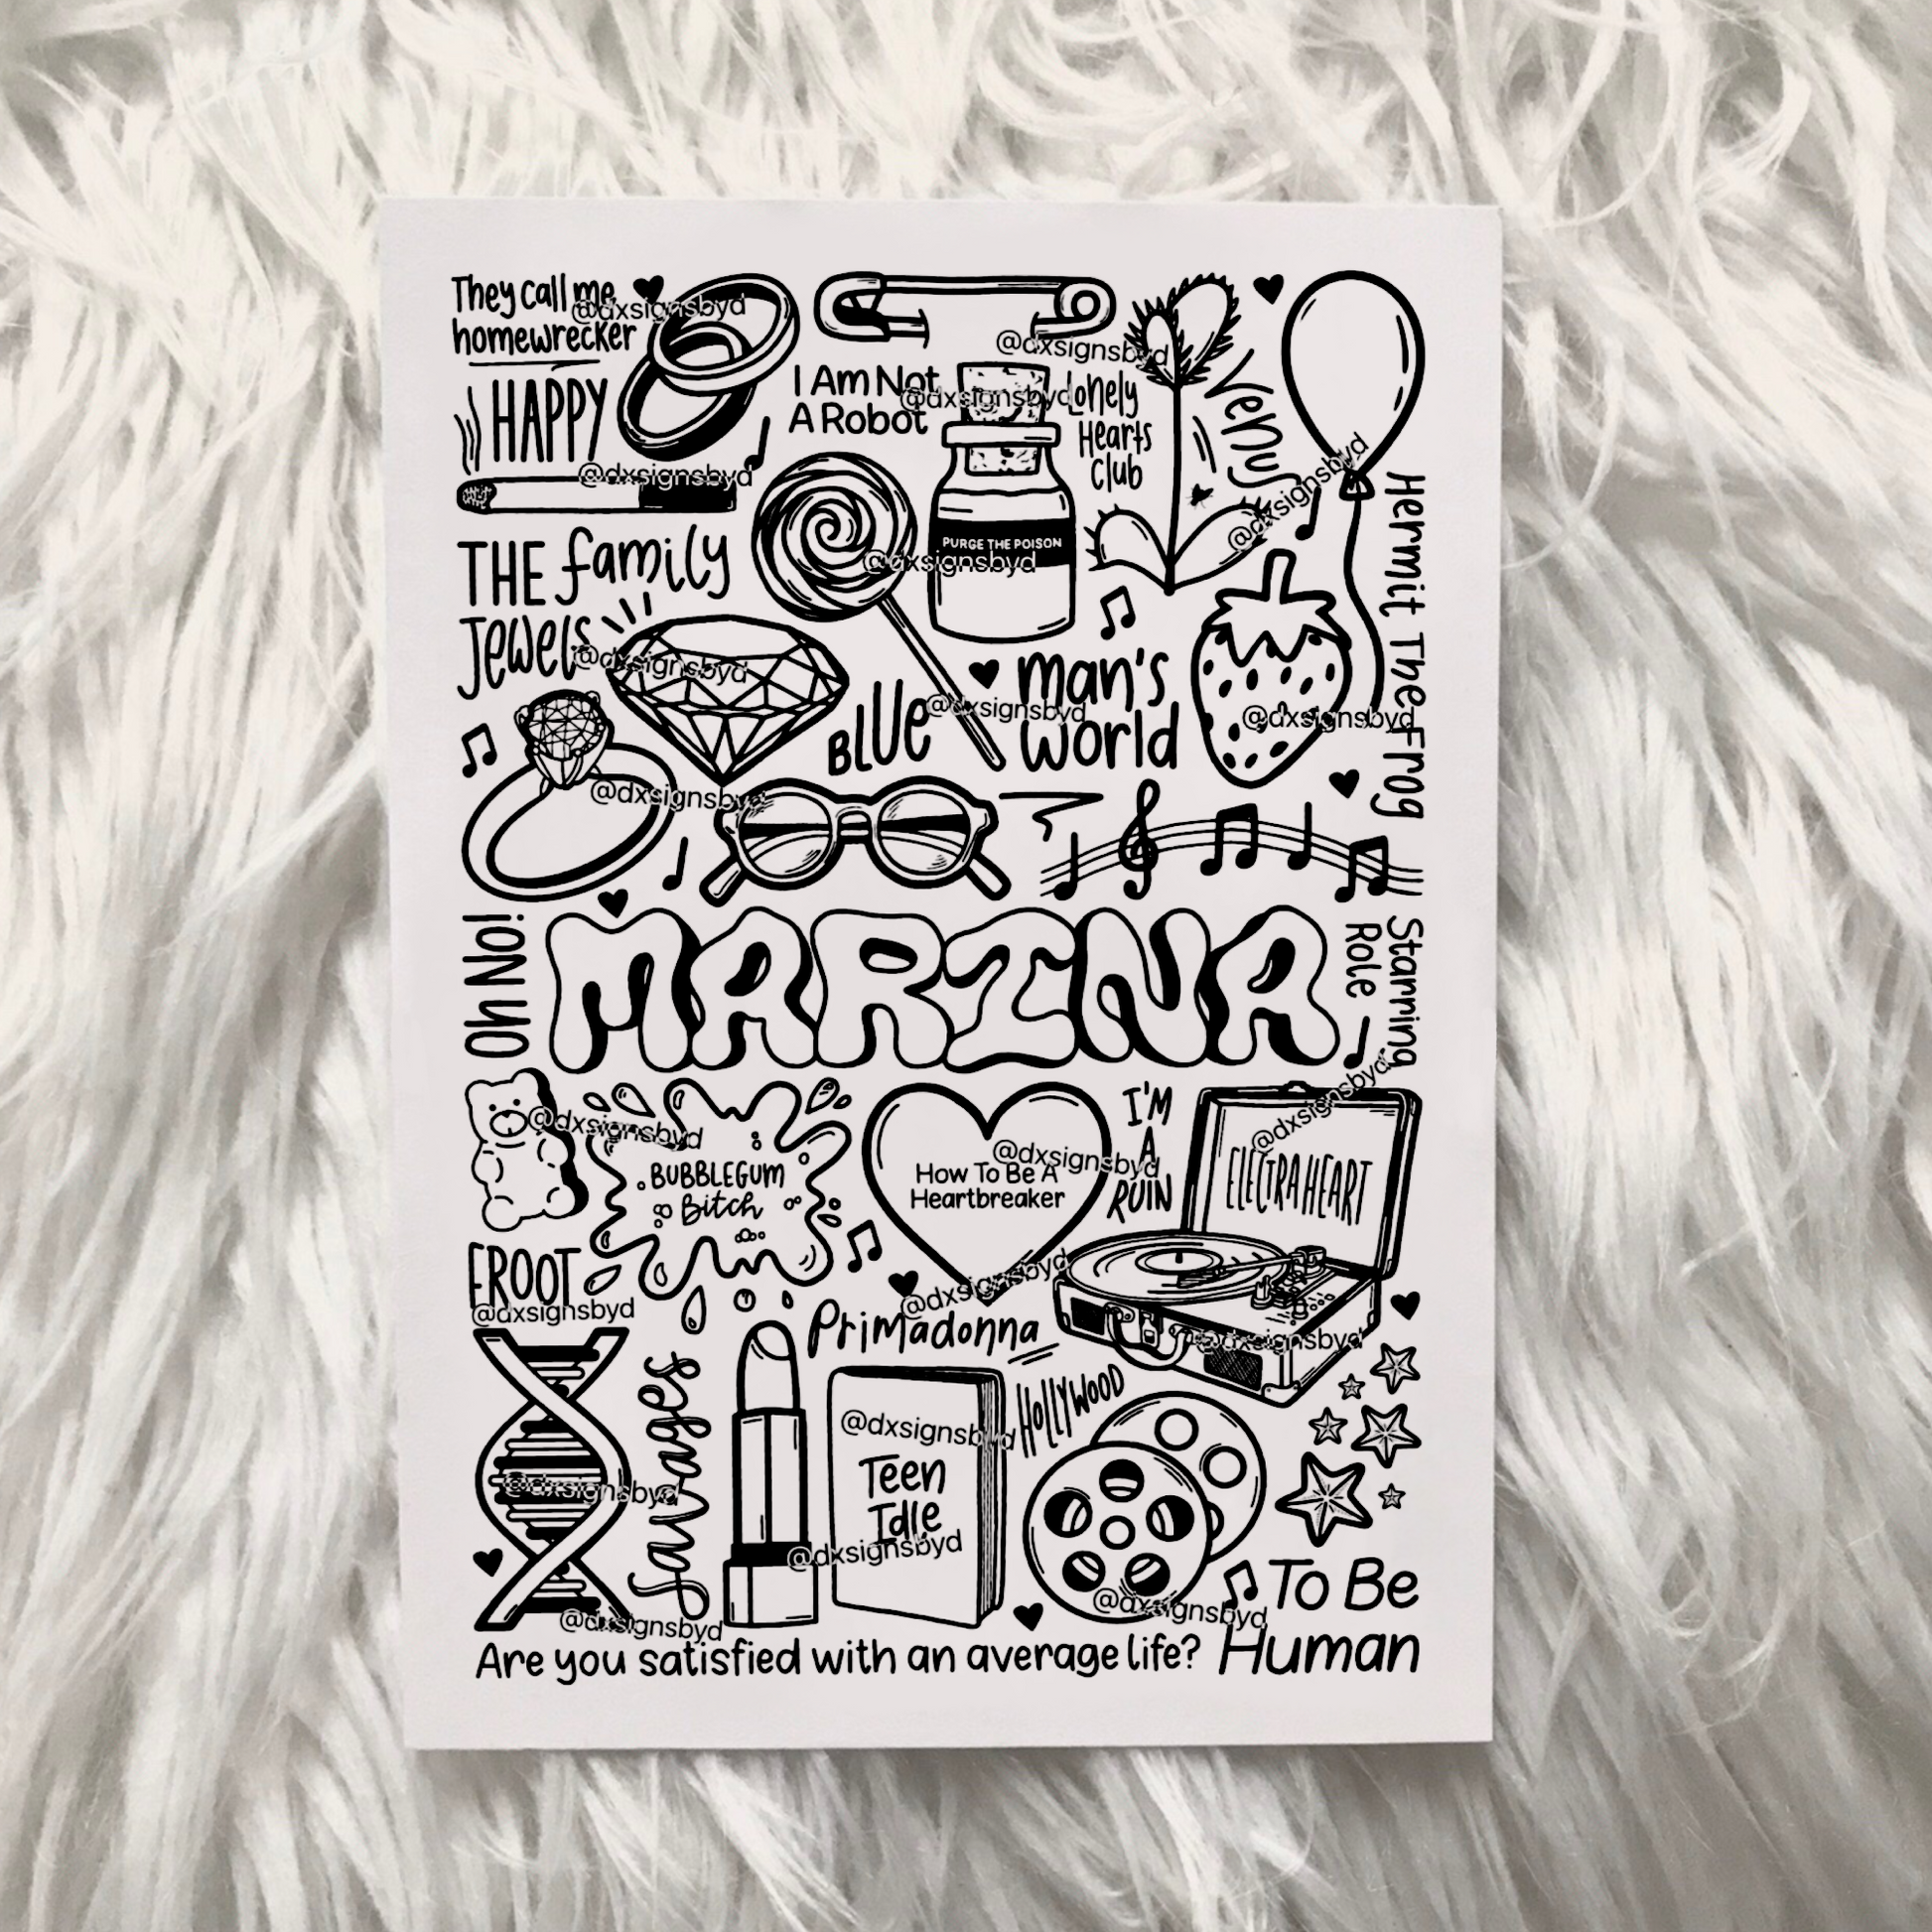 They call me
homewrecker
@dxsignsbyd
HAPPY
@dxsignsbyd
I Am Not
A Robot
@dxsignsbyd
@dxsignsbyd
Lonely
Hearts
Club
Venus
@dxsignsbyd
Hermit The Frog
THE family
Jewels
@dxsignsbyd
PURGE THE POISON
@dxsignsbyd
BLUE
@dxsignsbyd
man's
world
@dxsignsbyd
@dxsignsbyd
Oh No!
MARINA
Starring
Role
@dxsignsbyd
@dxsignsbyd
BUBBLEGUM
Bitch
How To Be A
Heartbreaker
@dxsignsbyd
I'M
A
RUIN
ELECTRA HEART
FROOT
@dxsignsbyd
@dxsignsbyd
Primadonna
@dxsignsbyd
savages
@dxsignsbyd
@dxsignsbyd
Teen
Idle
@dxsignsbyd
HOLLYWOOD
@dxsignsbyd
@dxsignsbyd
To Be
Human
Are you satisfied with an average life?